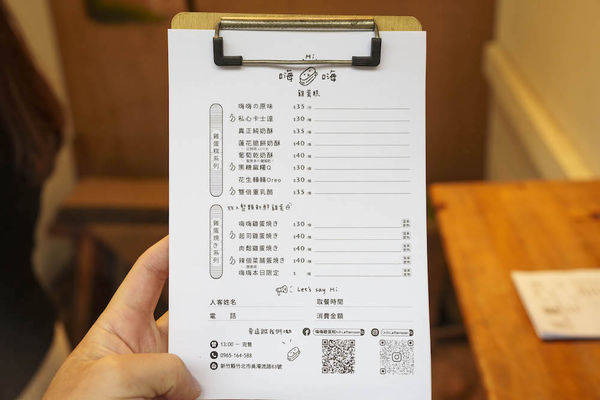 Hi
嗨 嗨
雞蛋糕
雞蛋糕系列
嗨嗨の原味 $35
私心卡士達 $30
真正純奶酥 $35
蓮花脆餅奶酥 $40
葡萄乾奶酥 $40
黑糖麻糬Q $30
花生轉轉Oreo $30
雙倍重乳酪 $35
放入整顆新鮮雞蛋
雞蛋燒き系列
嗨嗨雞蛋燒き $30
起司雞蛋燒き $40
肉鬆雞蛋燒き $40
辣個菜脯蛋燒き $40
嗨嗨本日限定 $
Let's say Hi
人客姓名 取餐時間
電話 消費金額
13:00 — 完售
0965-164-588
新竹縣竹北市吳濁流路63號